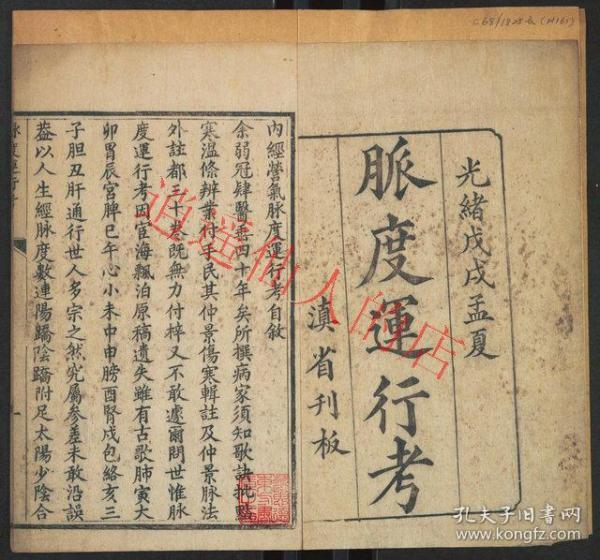 C68/1825a(N161)
光緒戊戌孟夏
脈度運行考
滇省刊板
內經營氣脈度運行考自敘
余弱冠肄醫壽四十年矣所撰病家須知歌訣批點
寒溫條辨業付手民其仲景傷寒輯註及仲景脈法
外註都三十卷既無力付梓又不敢遽爾問世惟脈
度運行考因宦海飄泊原稿遺失雖有古歌肺寅大
卯胃辰宮脾巳午心小未中申膀酉腎戌包絡亥三
子胆丑肝通行世人多宗之然究屬參差未敢沿誤
蓋以人生經脈度數連陽蹻陰蹻附足太陽少陰合
脈度運行考
一
逍遥仙人的店
孔夫子旧书网
www.kongfz.com